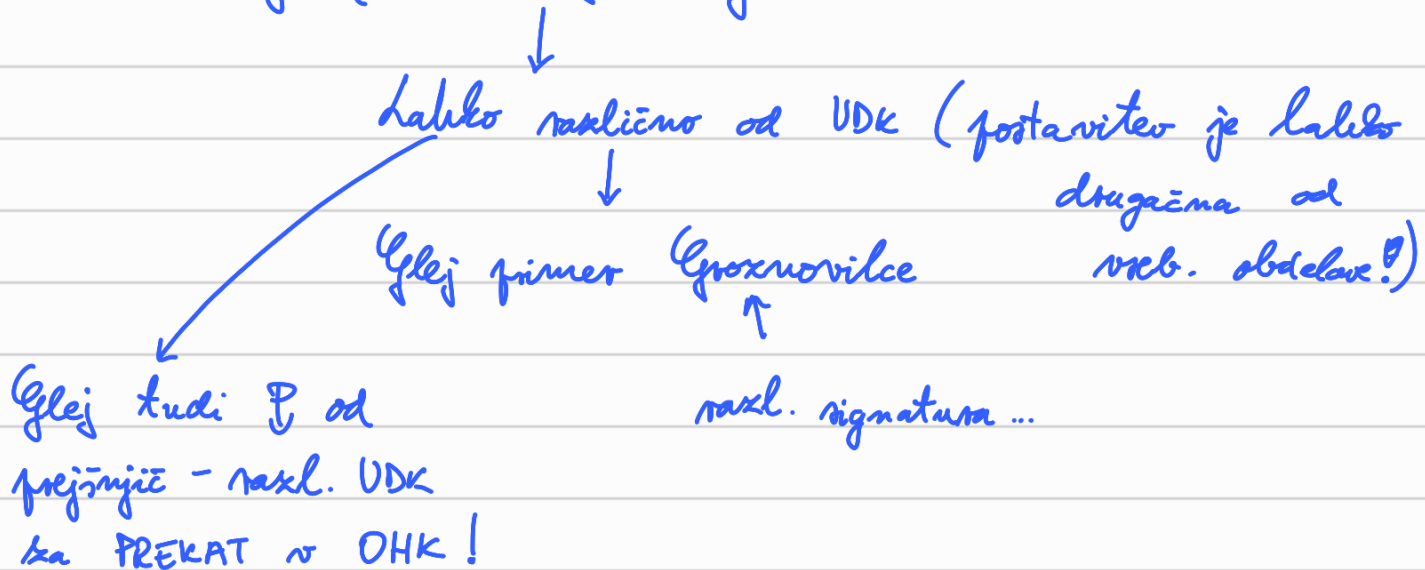 Lahko različno od UDK (postavitev je lahko
drugačna od
vseb. obdelave!)
Glej primer Groznovilce
razl. signatura ...
Glej tudi od
prejšnjič - razl. UDK
za PREKAT v OHK!